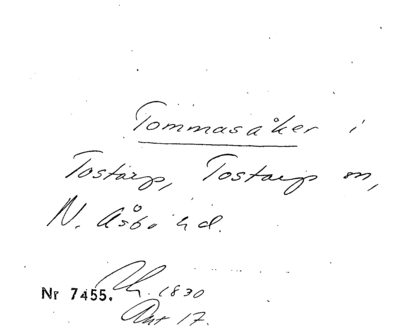 Tommasåker i
Tostarp, Tostarp sn,
N. Åsbo hd.
Nr 7455. 1830
Akt 17.